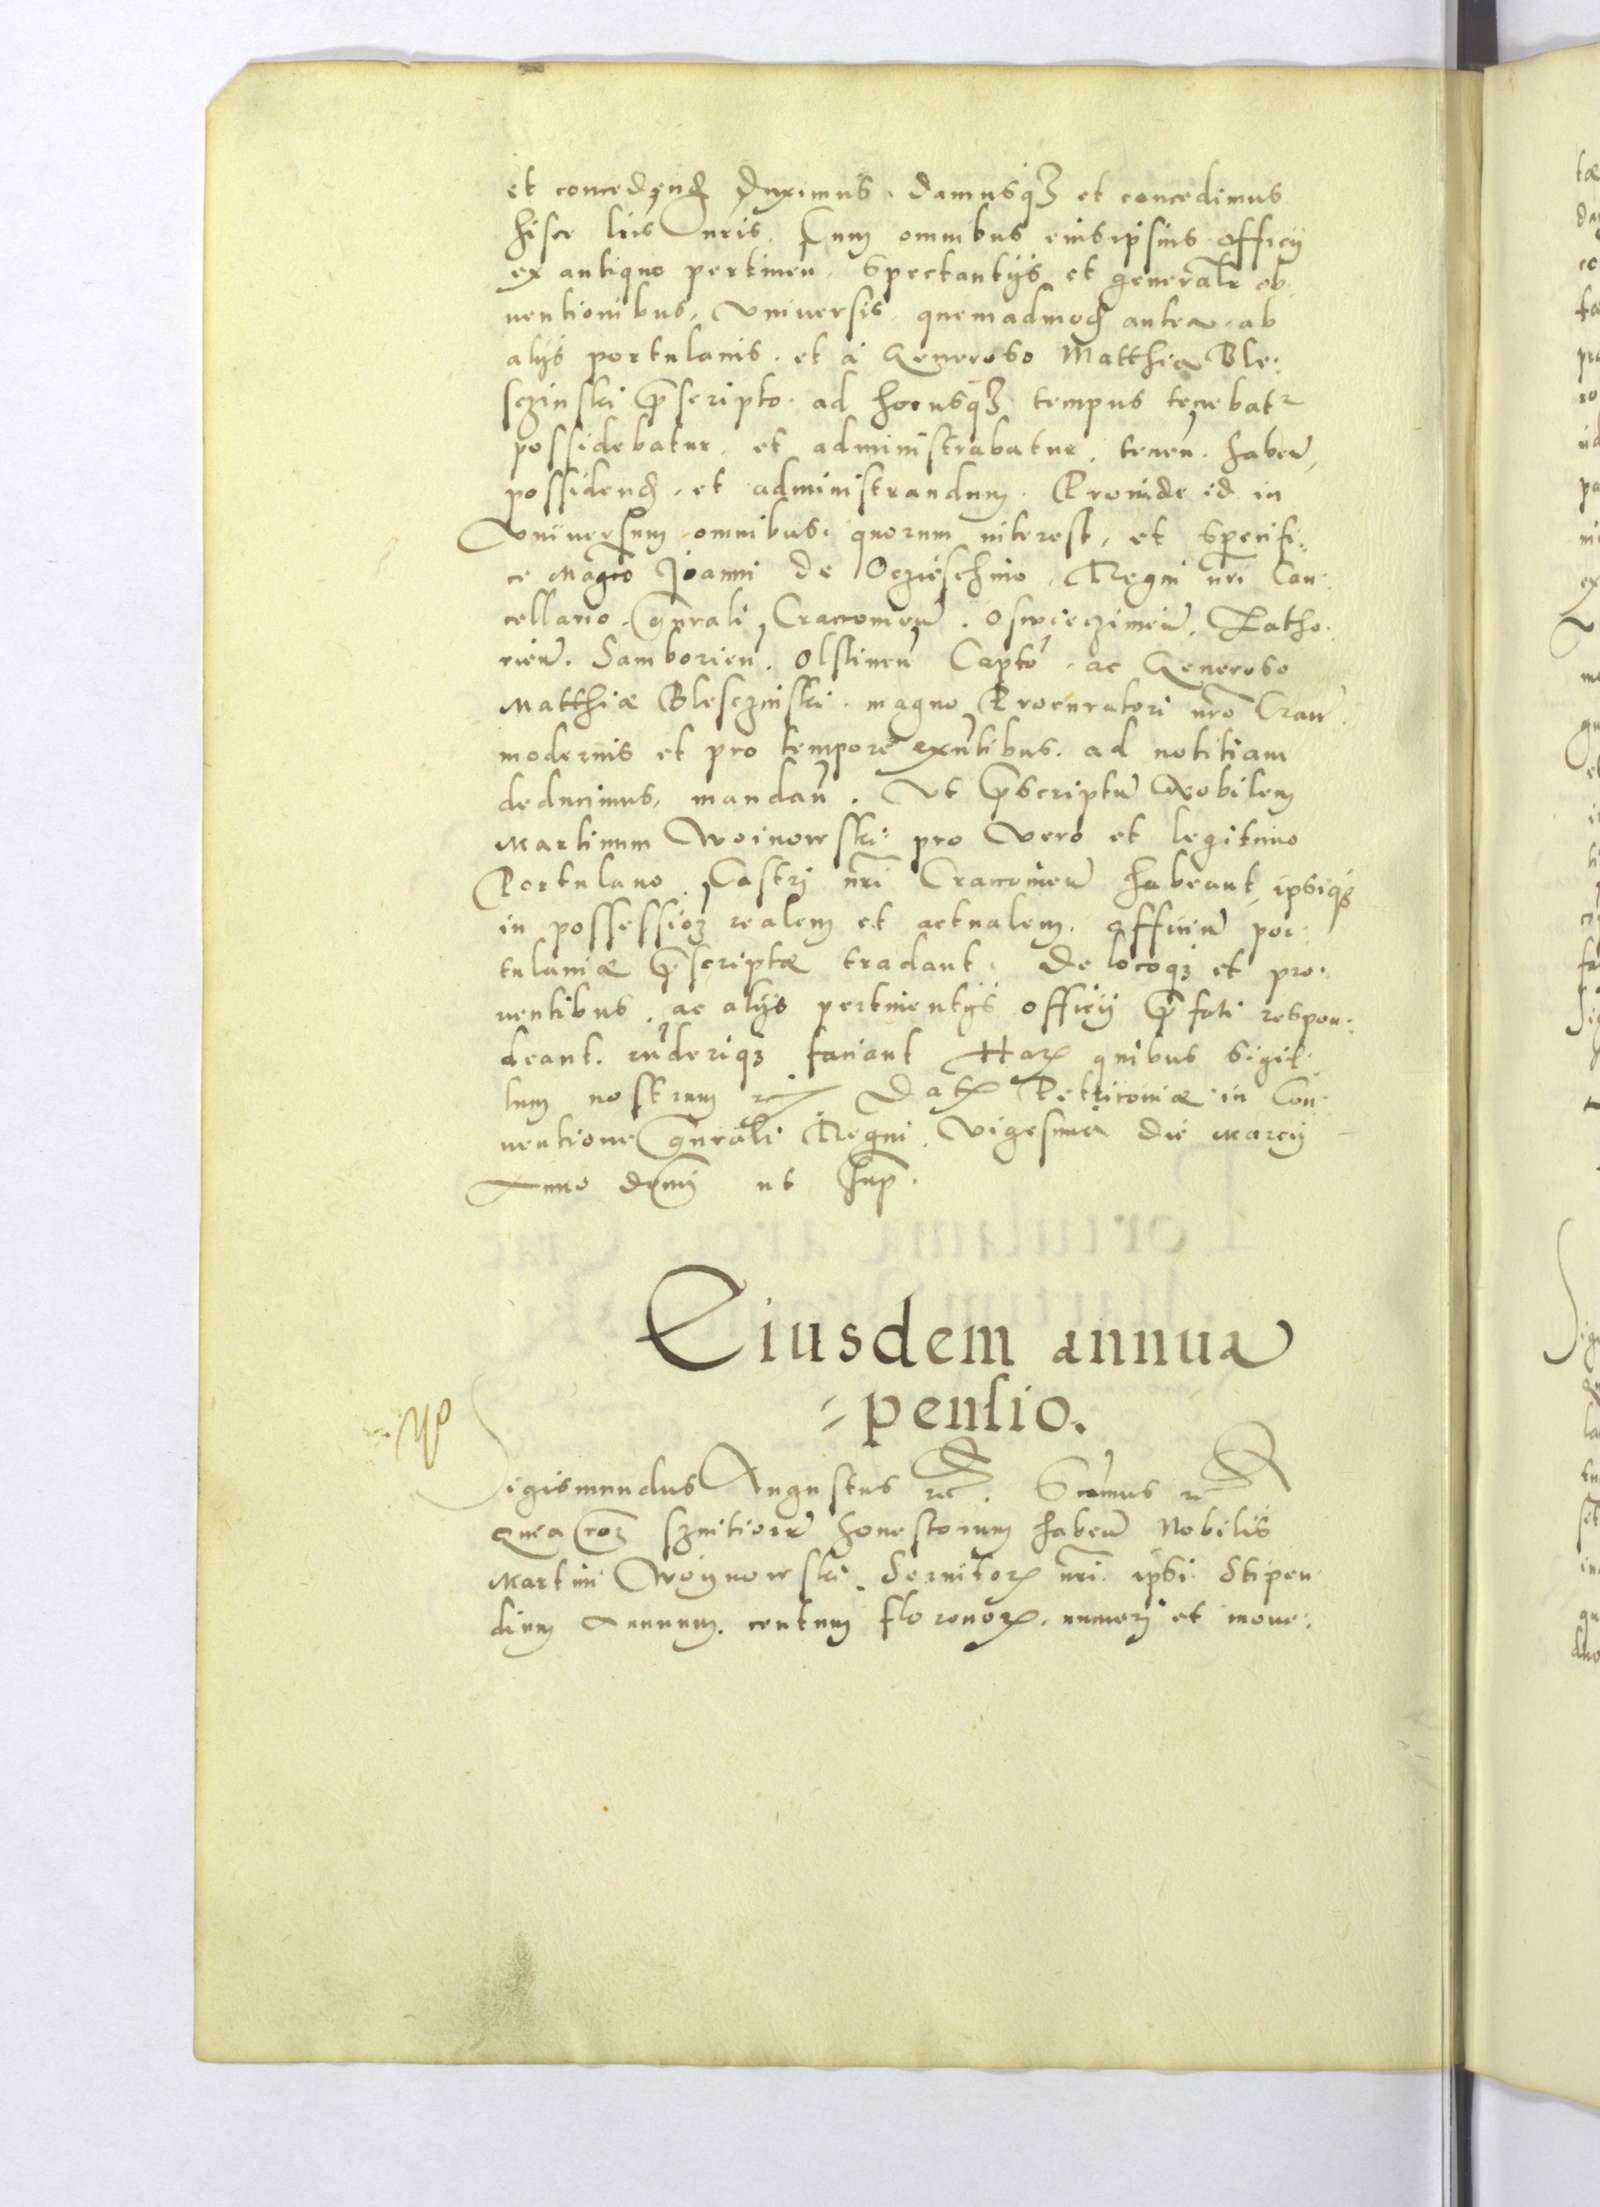 et concedend duximus. damusq3 et concedimus
hisce lris nris. Cum omnibus eius ipsius officij
ex antiquo pertinen. spectantijs et generalr ob
uentionibus, vniuersis quemadmod antea ab
alijs portulanis. et à Generoso Matthia Ble:
sczinski p̄scripto. ad hocusq3 tempus tenebatr
possidebatur. et administrabatur. tenen. haben,
possidend, et administrandum. Proinde id in
Vniuersum omnibus. quorum interest, et specifi:
ce Magco Joanni de Oczieschino, Regni nri Can:
cellario. gnrali, Cracouien. Oswieczimen.
rien. Samborien. Olstinen Capto, ac Generoso
Matthiæ Blesczinski. magno Procuratori nro Crac.
modernis et pro tempore exntibus. ad notitiam
deducimus, mandan. Vt p̄scriptu Nobilem
Martinum Woinowski pro vero et legitimo
Portulano, Castrj nri Cracouien habeant, ipsiq3
in possessio3 realem et actualem. officiu por:
tulaniæ p̄scriptæ tradant. De locoq3 et pro:
uentibus, ac alijs pertinentijs officij p̄fati respon:
deant. rnderiq3 faciant Har quibus sigil:
lum nostrum rc Dat Petricouiæ in Con:
uentione gnrali Regni. vigesima die Marcij
Anno dmni ut sup.
Eiusdem annua
pensio.
Sigismundus Augustus rc. Scimus rc
Quia servitioru honestorum haben Nobilis
Martini Woynowski Seruitor nri. ipsi stipen
dium annuum. centum florenor. numerj et mone: